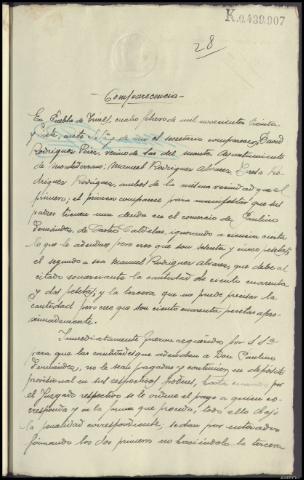 K.0,439,907
28
Comparecencia
En Puebla de Trives, cuatro febrero de mil novecientos treinta
y siete, ante S.Sª y de mi el secretario comparecen David
Rodriguez Perez, vecino de
de Manuel Rodriguez Alvarez, Rodriguez, ambos de la misma vecindad que el
primero; el primero comparece para manifestar que sus
padres tienen una deuda en el comercio de Paulino
Fernández de Castro Caldelas, ignorando a ciencia cierta
lo que le adeudan pero cree que son setenta y cinco pesetas;
el segundo a sea Manuel Rodriguez Alvarez, que debe al
citado comerciante la cantidad de ciento cuarenta
y dos pesetas; y la tercera que no puede precisar la
cantidad pero cree que son cincuenta pesetas apro-
ximadamente.
Inmediatamente fueron requeridos por S.Sª
para que las cantidades que adeudan a Don Paulino
Fernández, no le sean pagadas y continuen en depósito
provisional en sus respectivos poderes, hasta cuando por
el Juzgado respectivo se le ordene el pago a quien co-
rresponda y en la forma que proceda, todo ello bajo
la penalidad correspondiente, se dan por enterados
firmando los dos primeros no haciendolo la tercera